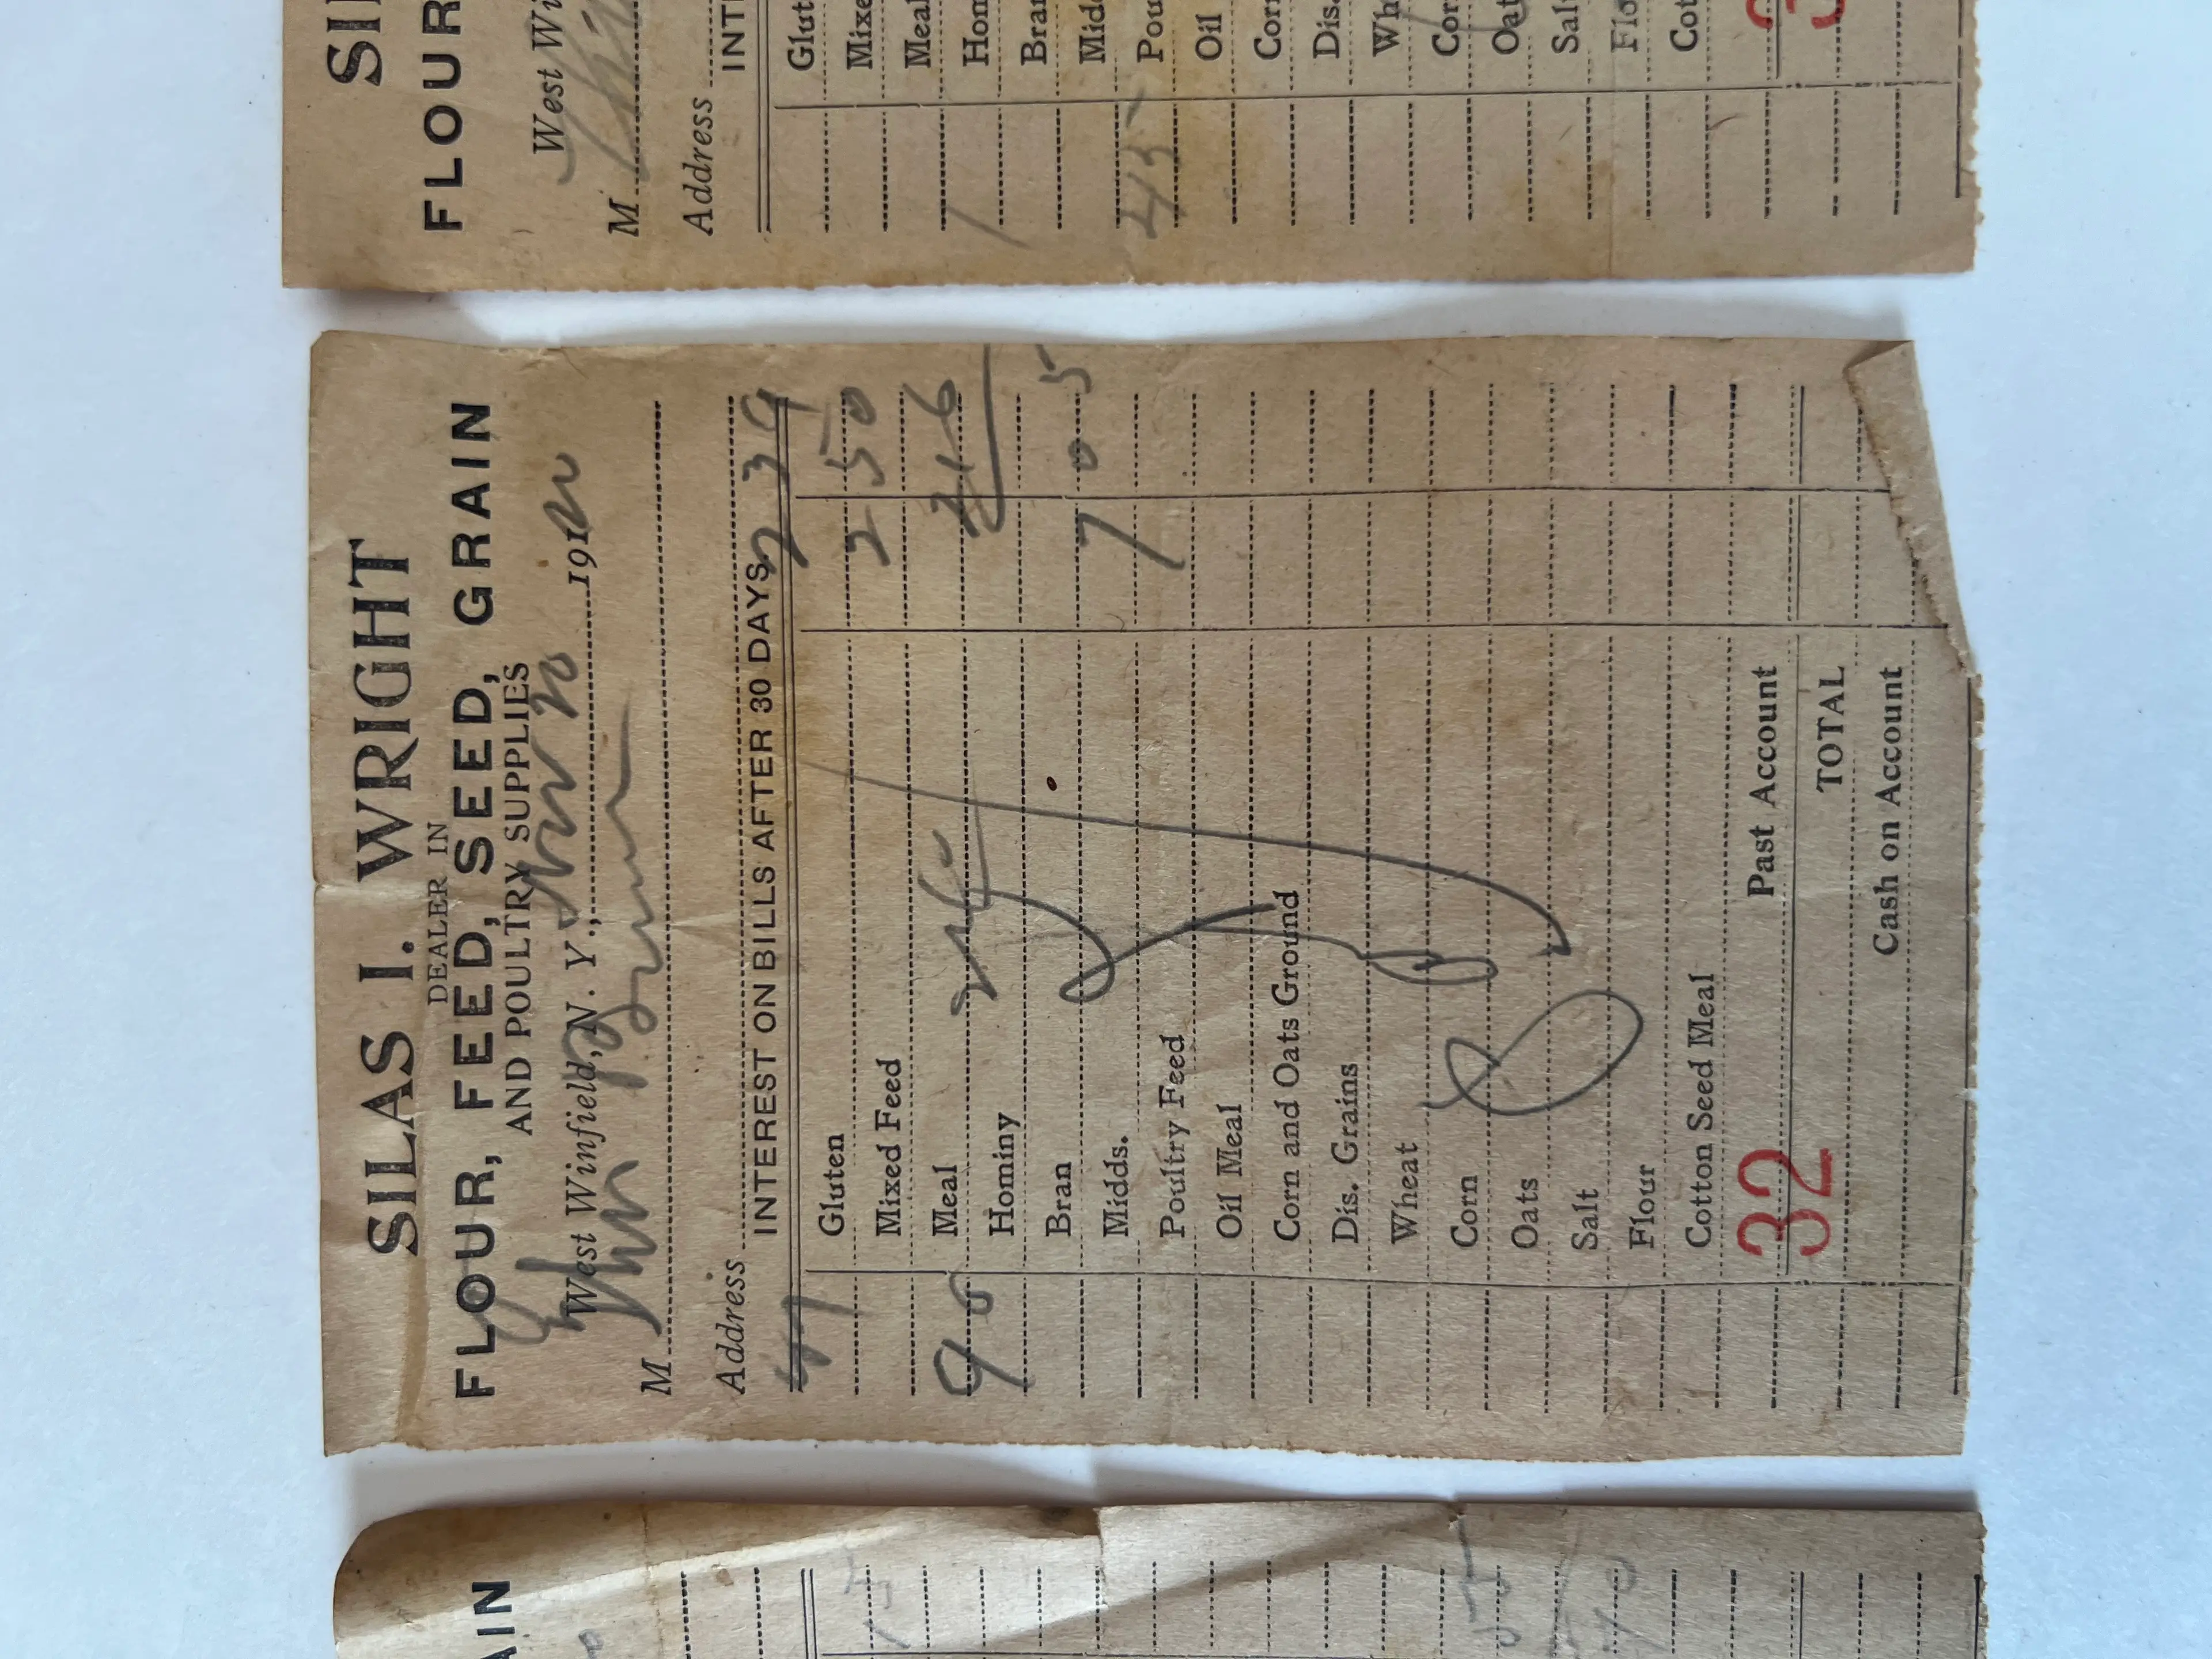 SILAS I. WRIGHT
DEALER IN
FLOUR, FEED, SEED, GRAIN
AND POULTRY SUPPLIES
West Winfield, N. Y., Nov 20 1920
M John
Address
INTEREST ON BILLS AFTER 30 DAYS. 2 39
Gluten 2 50
Mixed Feed
90 Meal 2 16
Hominy
Bran 7 05
Midds.
Poultry Feed
Oil Meal
Corn and Oats Ground
Dis. Grains
Wheat
Corn
Oats
Salt
Flour
Cotton Seed Meal
32 Past Account
TOTAL
Cash on Account
FLOUR
West Wi
M
Address
INT
Glut
Mixe
Meal
Hom
Bran
Midd
45 Pou
Oil
Corn
Dis.
Wh
Cor
Oat
Salt
Flo
Cot
AIN